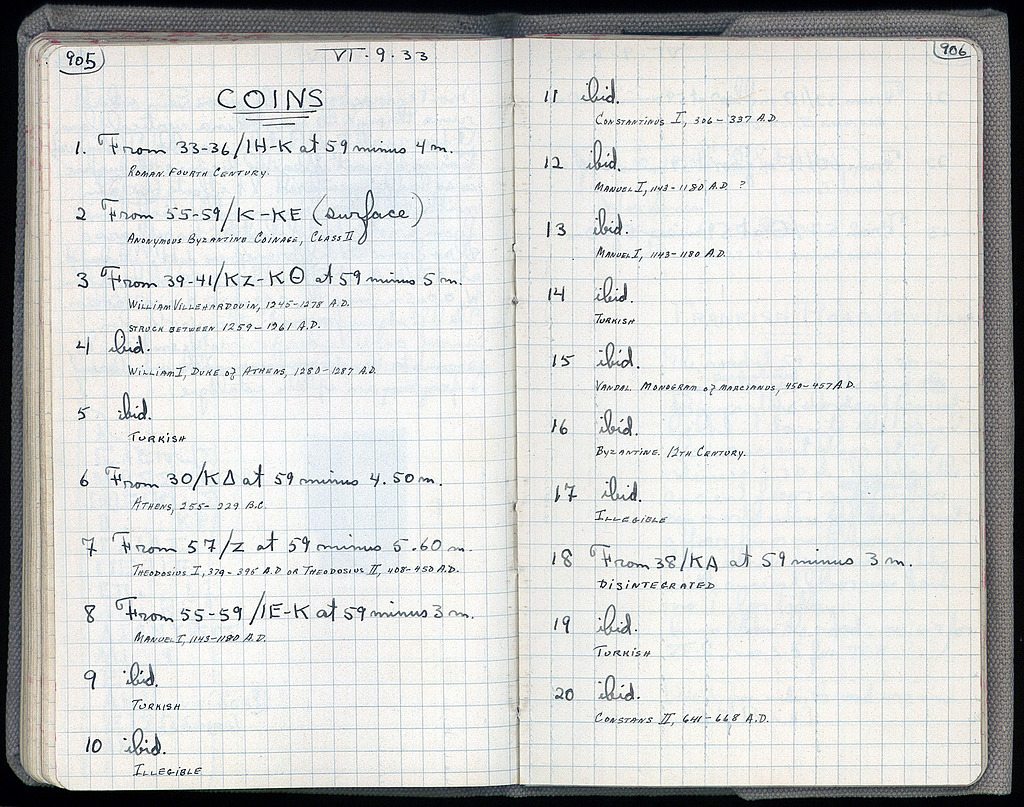 905
VI · 9 · 33
COINS
1. From 33-36/ΙΗ-Κ at 59 minus 4 m.
ROMAN. FOURTH CENTURY.
2 From 55-59/Κ-ΚΕ (surface)
ANONYMOUS BYZANTINE COINAGE, CLASS II
3 From 39-41/ΚΖ-ΚΘ at 59 minus 5 m.
WILLIAM VILLEHARDOUIN, 1245-1278 A.D.
STRUCK BETWEEN 1259-1261 A.D.
4 ibid.
WILLIAM I, DUKE of ATHENS, 1280-1287 A.D.
5 ibid.
TURKISH
6 From 30/ΚΔ at 59 minus 4.50 m.
ATHENS, 255-229 B.C.
7 From 57/Ζ at 59 minus 5.60 m.
THEODOSIUS I, 379-395 A.D OR THEODOSIUS II, 408-450 A.D.
8 From 55-59/ΙΕ-Κ at 59 minus 3 m.
MANUEL I, 1143-1180 A.D.
9 ibid.
TURKISH
10 ibid.
ILLEGIBLE
906
11 ibid.
CONSTANTINUS I, 306-337 A.D.
12 ibid.
MANUEL I, 1143-1180 A.D. ?
13 ibid.
MANUEL I, 1143-1180 A.D.
14 ibid.
TURKISH
15 ibid.
VANDAL. MONOGRAM of MARCIANUS, 450-457 A.D.
16 ibid.
BYZANTINE. 12TH CENTURY.
17 ibid.
ILLEGIBLE
18 From 38/ΚΛ at 59 minus 3 m.
DISINTEGRATED
19 ibid.
TURKISH
20 ibid.
CONSTANS II, 641-668 A.D.